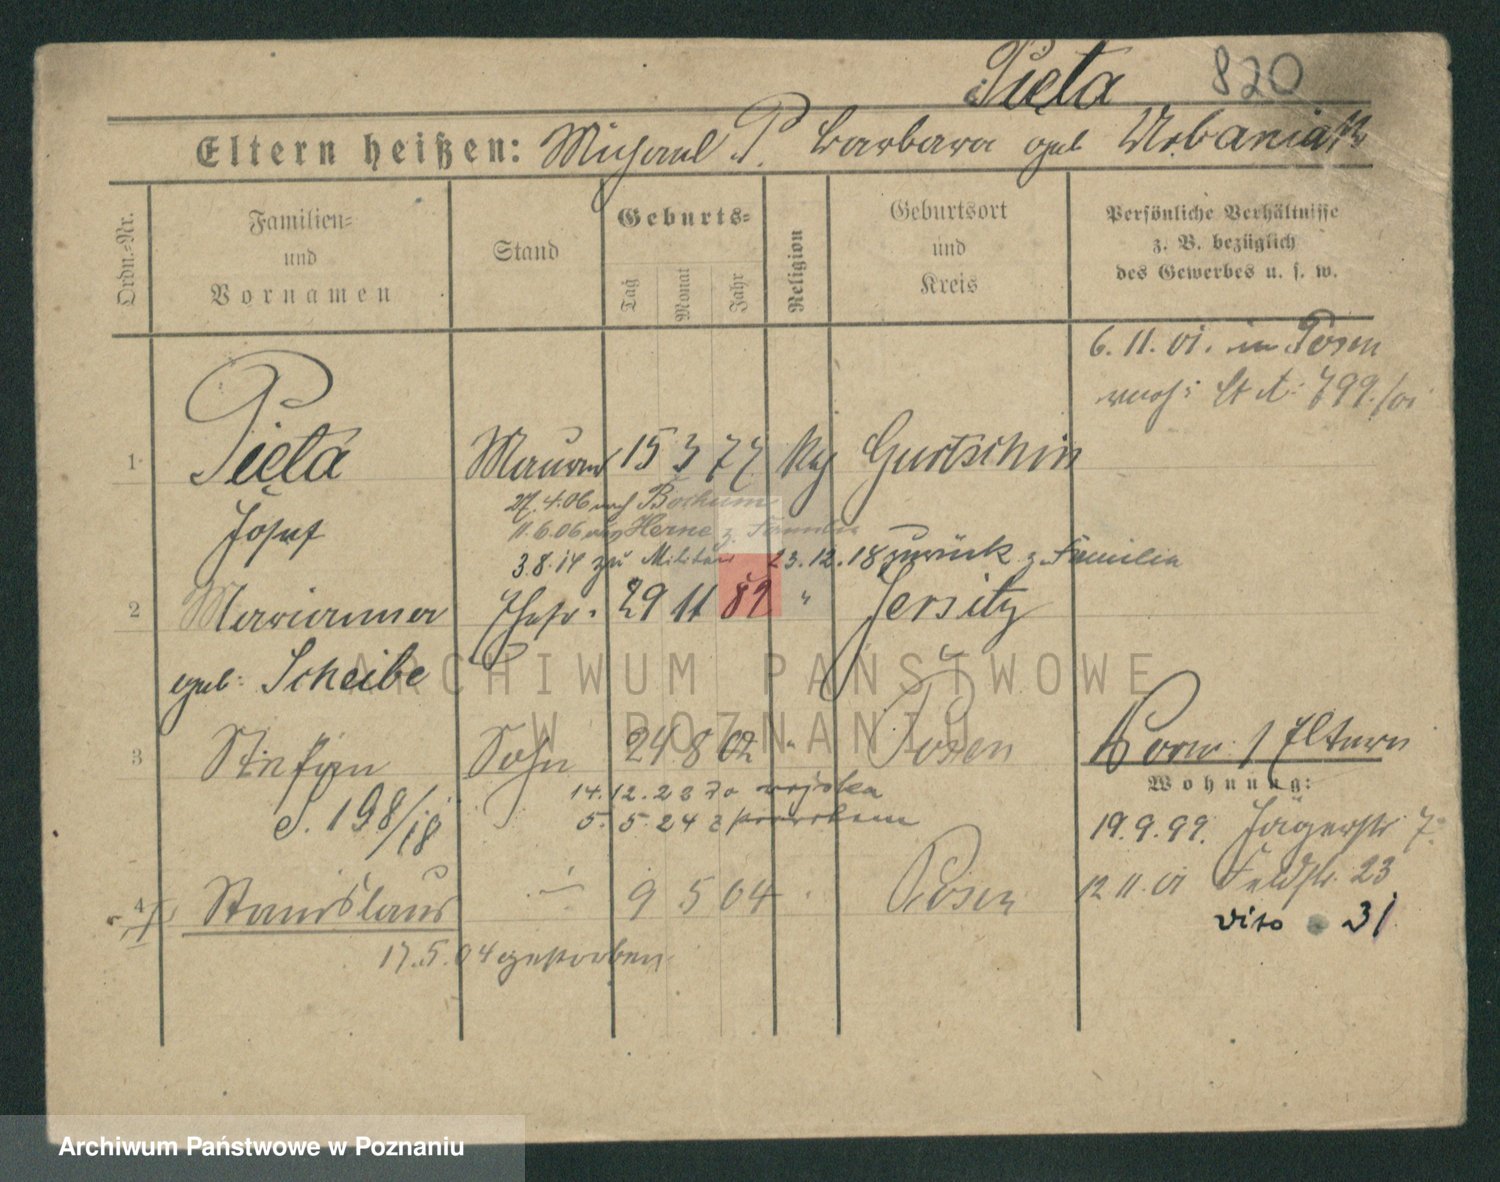 Pięta 820
Eltern heißen: Michael P. Barbara geb Urbaniak
Ordn.-Nr.
Familien-
und
Vornamen
Stand
Geburts-
Tag
Monat
Jahr
Religion
Geburtsort
und
Kreis
Persönliche Verhältnisse
z. B. bezüglich
des Gewerbes u. s. w.
6. 11. 01. in Posen
St. A. 799/01
1 Pięta Maurer 15 3 77 kg Gurtschin
Josef
27.4.06 nach Bochum
11.6.06 Herne z. Familie
3.8.14 zu Militär 23.12.18 zurück z. Familie
2 Marianna Ehefr. 29 11 " Jersitz
geb: Scheibe
3 Stefan Sohn 24 8 02 " Posen
S. 198/18
14.12.23 do wojska
5.5.24 z powrotem
4 Stanislaus 9 5 04 Posen
17.5.04 gestorben
Eltern
Wohnung:
19.9.99. Jägerstr 7.
12 11 01 Feldstr. 23
31
ARCHIWUM PAŃSTWOWE
W POZNANIU
Archiwum Państwowe w Poznaniu